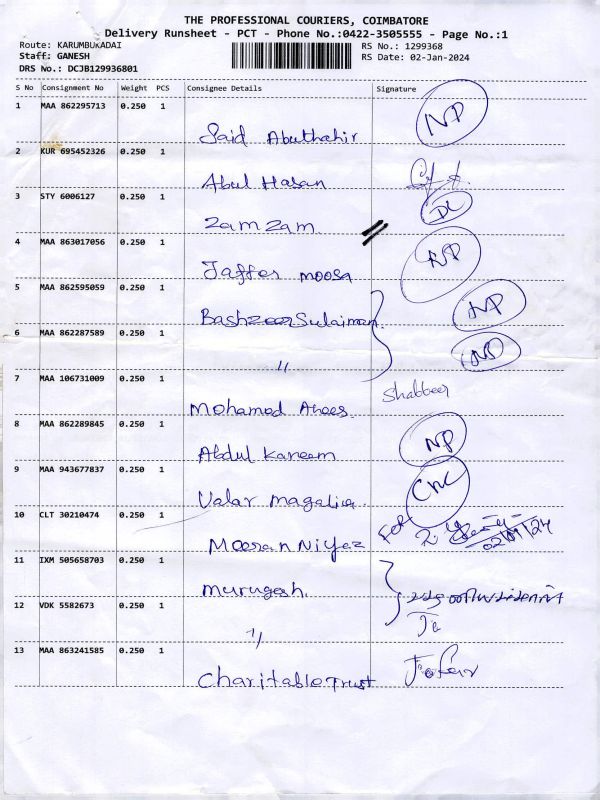 THE PROFESSIONAL COURIERS, COIMBATORE
Delivery Runsheet - PCT - Phone No.:0422-3505555 - Page No.:1
Route: KARUMBUKADAI RS No.: 1299368
Staff: GANESH RS Date: 02-Jan-2024
DRS No.: DCJB129936801
S No Consignment No Weight PCS Consignee Details Signature
1 MAA 862295713 0.250 1 NP
Said Abuthahir
2 KUR 695452326 0.250 1
Abul Hasan
3 STY 6006127 0.250 1 DL
Zam Zam
4 MAA 863017056 0.250 1 NP
Jaffer moosa
5 MAA 862595059 0.250 1 NP
Basheer Sulaiman
6 MAA 862287589 0.250 1 NP
"
7 MAA 106731009 0.250 1 Shabbeer
Mohamed Anees
8 MAA 862289845 0.250 1 NP
Abdul Kareem
9 MAA 943677837 0.250 1 CNC
Valar magaliq
10 CLT 30210474 0.250 1 For
02/01/24
Moosan Niyaz
11 IXM 505658703 0.250 1
murugesh.
12 VDK 5582673 0.250 1
"
13 MAA 863241585 0.250 1 Jafar
Charitable Trust